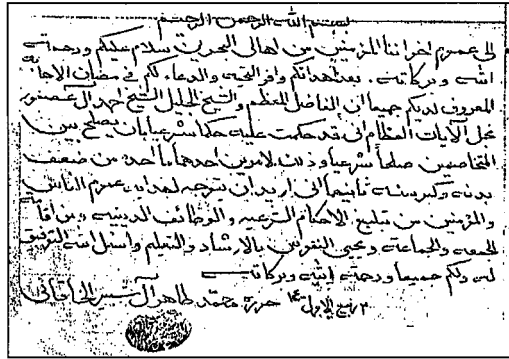 بسم الله الرحمن الرحيم
الى عموم اخواننا المؤمنين من اهالي البحرين سلام عليكم ورحمة
الله وبركاته. بعد اهدائكم وافر التحية والدعاء. لكم في مضان الاجابة
المعروف لديكم جميعا ان الفاضل المعظم والشيخ الجليل الشيخ احمد ال عصفور
نجل الآيات العظام اني قد حكمت عليه حكما شرعيا بان يصلح بين
المتخاصمين صلحا شرعيا وذلك لامرين احدهما ما احد من ضعف
بدنه وكبر سنه ثانيهما اني اريد ان يتوجه لهداية عموم الناس
والمؤمنين من تبليغ الاحكام الشرعية والوظائف الدينية ومن اقامة
الجمعة والجماعة ويحيى النفوس بالارشاد والتعليم واسئل الله التوفيق
له ولكم جميعا ورحمة الله وبركاته
ربيع الاول حرره محمد طاهر آل شبير الخاقاني